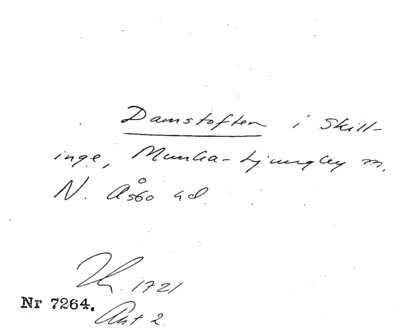 Damstoften i Skill-
inge, Munka-Ljungby sn,
N. Åsbo hd.
1721
Nr 7264.
Akt 2